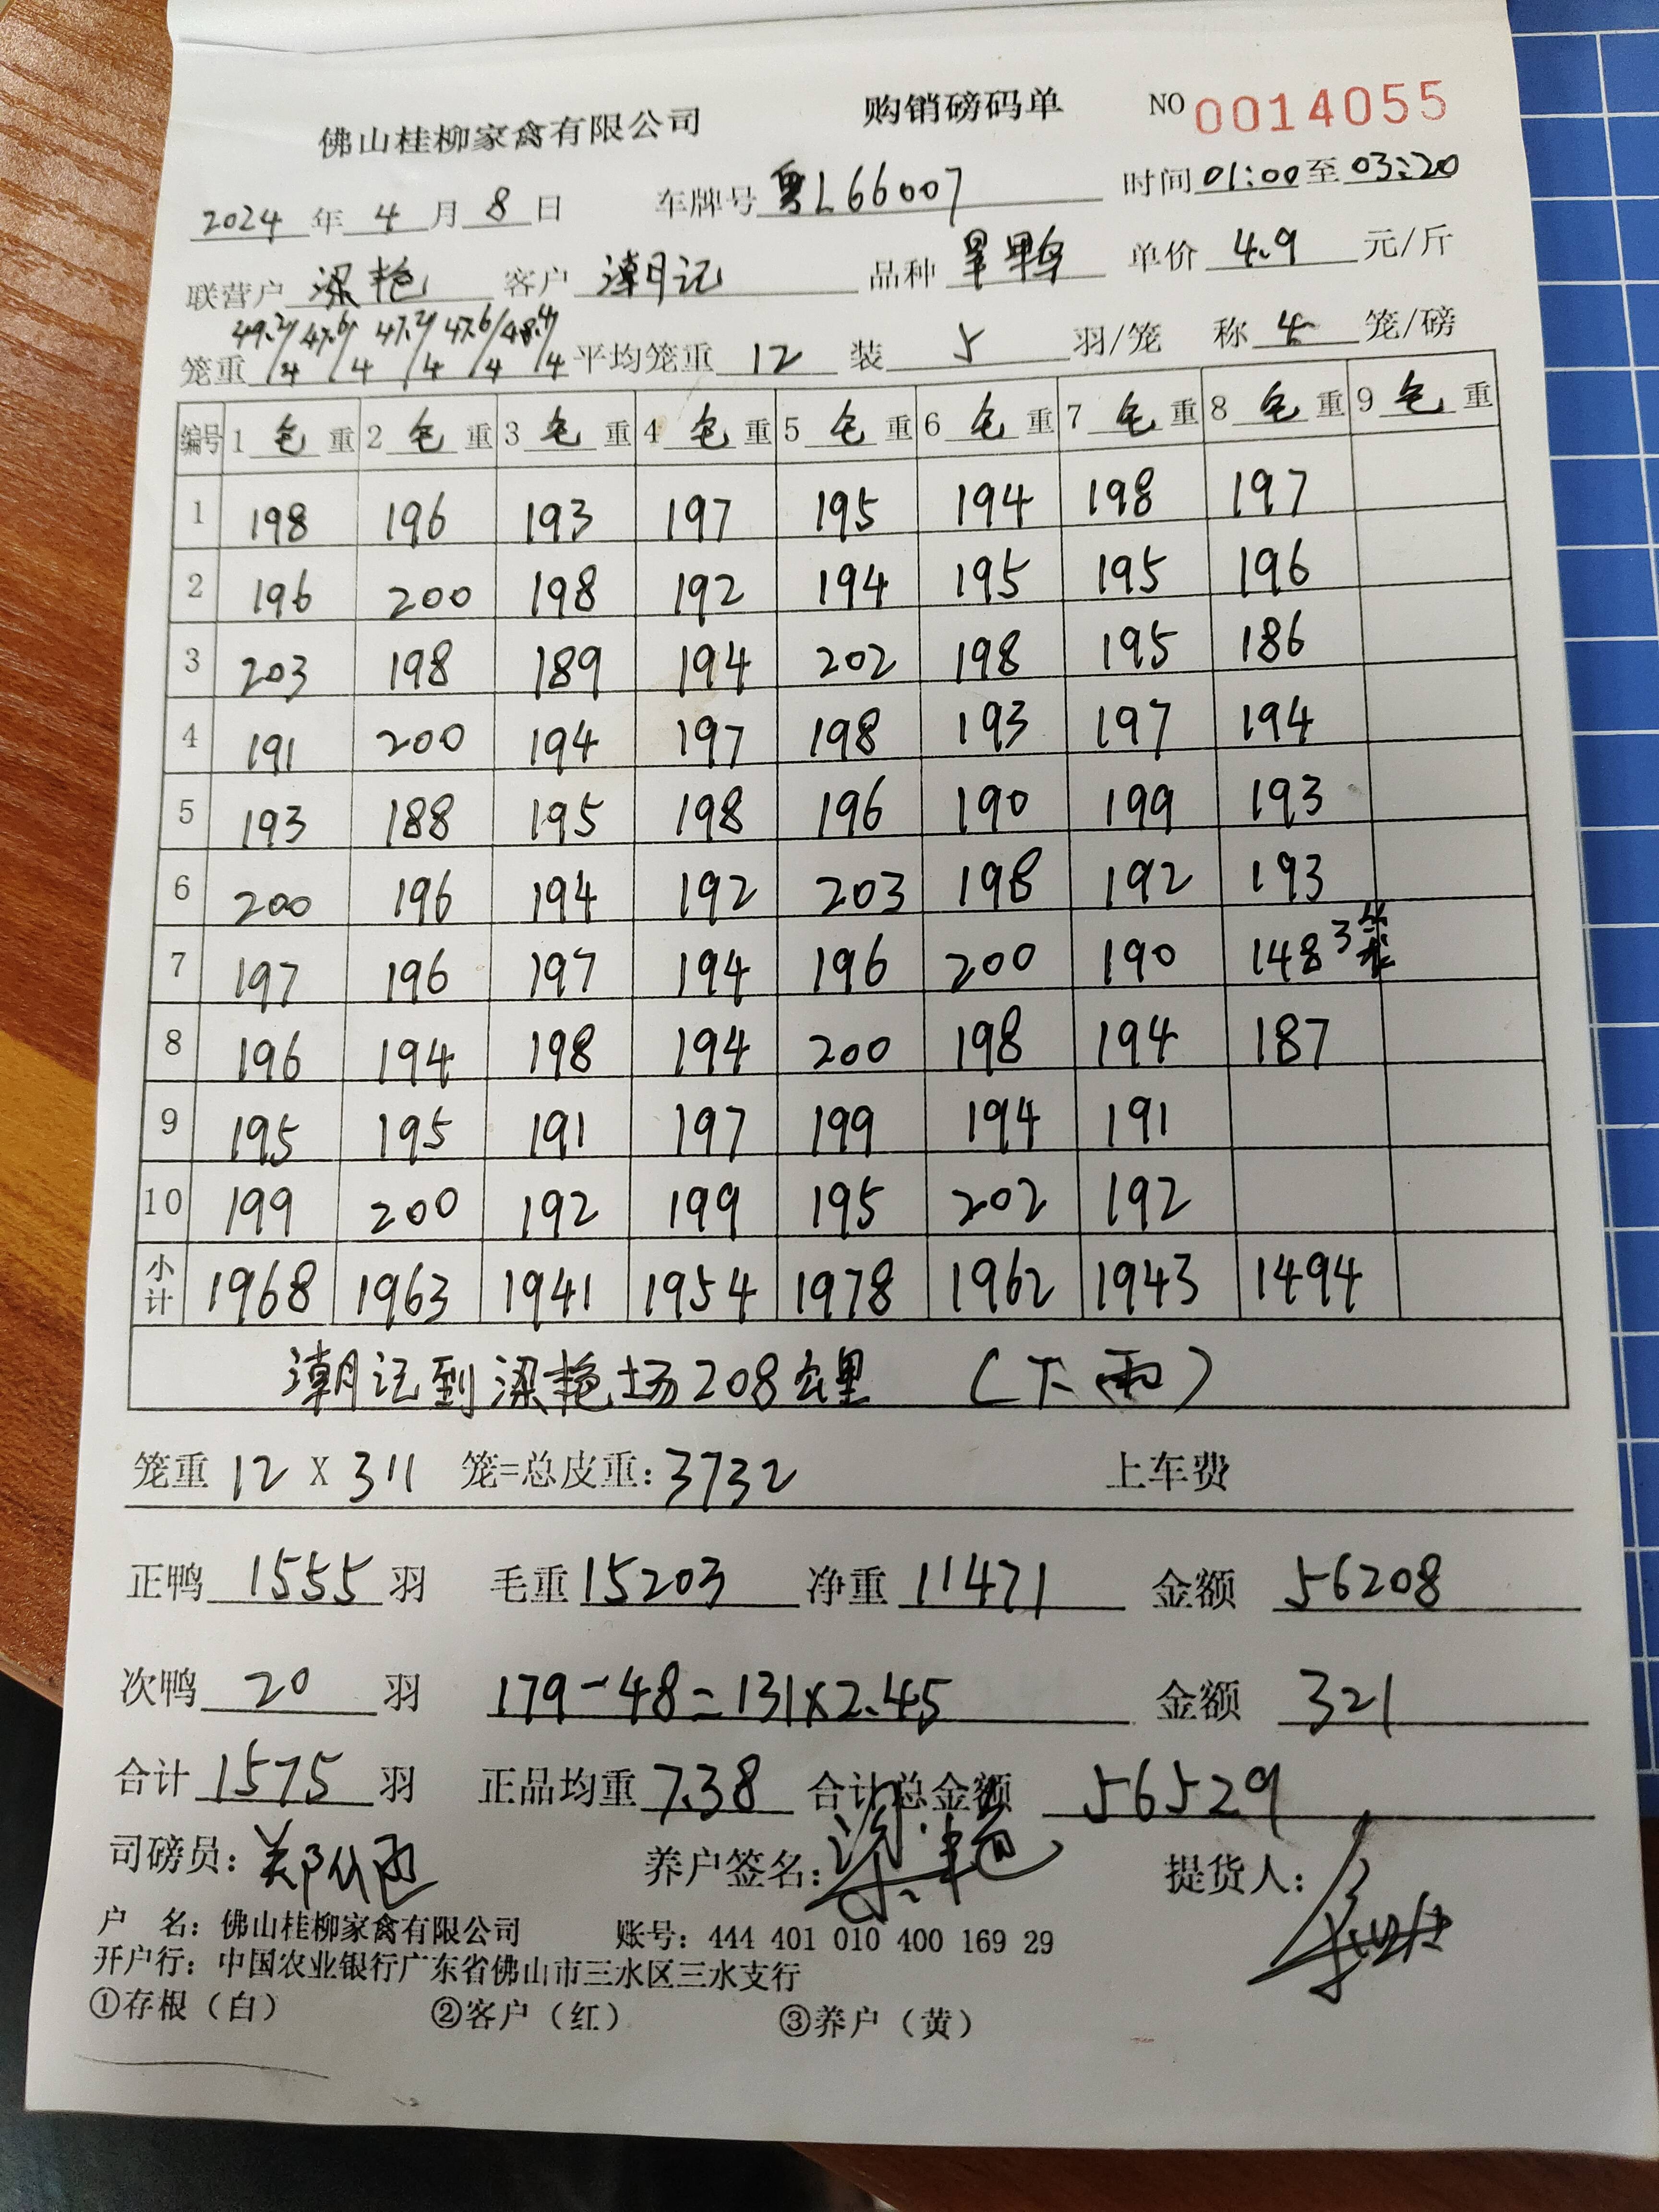 佛山桂柳家禽有限公司 购销磅码单 NO 0014055
2024 年 4 月 8 日 车牌号 粤L66007 时间 01:00 至 03:20
联营户 梁艳 客户 潮记 品种 旱鸭 单价 4.9 元/斤
笼重 49.2/4 47.6/4 47.2/4 47.6/4 48.4/4 平均笼重 12 装 5 羽/笼 称 4 笼/磅
编号 1 毛 重 2 毛 重 3 毛 重 4 毛 重 5 毛 重 6 毛 重 7 毛 重 8 毛 重 9 毛 重
1 198 196 193 197 195 194 198 197
2 196 200 198 192 194 195 195 196
3 203 198 189 194 202 198 195 186
4 191 200 194 197 198 193 197 194
5 193 188 195 198 196 190 199 193
6 200 196 194 192 203 198 192 193
7 197 196 197 194 196 200 190 148 3笼
8 196 194 198 194 200 198 194 187
9 195 195 191 197 199 194 191
10 199 200 192 199 195 202 192
小计 1968 1963 1941 1954 1978 1962 1943 1494
潮记到梁艳场208公里 (下雨)
笼重 12 X 311 笼=总皮重: 3732 上车费
正鸭 1555 羽 毛重 15203 净重 11471 金额 56208
次鸭 20 羽 179-48=131×2.45 金额 321
合计 1575 羽 正品均重 7.38 合计总金额 56529
司磅员: 养户签名: 梁艳 提货人:
户 名: 佛山桂柳家禽有限公司 账号: 444 401 010 400 169 29
开户行: 中国农业银行广东省佛山市三水区三水支行
①存根(白) ②客户(红) ③养户(黄)